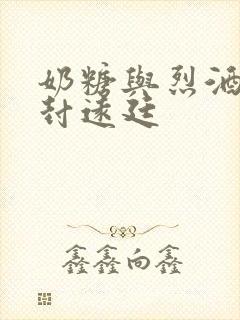 奶糖與烈酒
封遠廷
鑫鑫向鑫